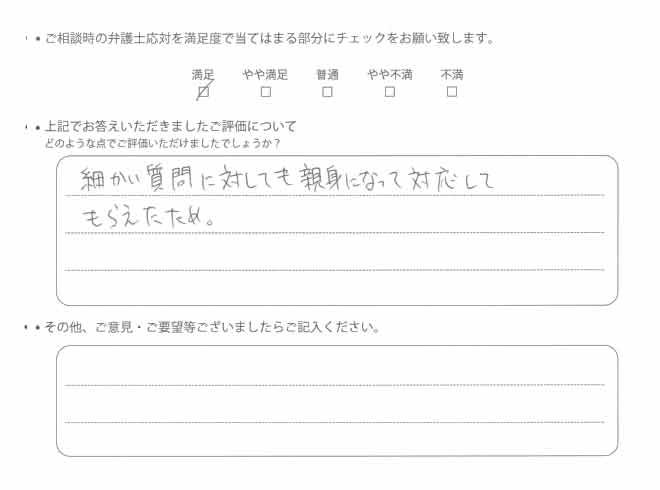 • ご相談時の弁護士応対を満足度で当てはまる部分にチェックをお願い致します。
満足 やや満足 普通 やや不満 不満
• 上記でお答えいただきましたご評価について
どのような点でご評価いただけましたでしょうか？
細かい質問に対しても親身になって対応して
もらえたため。
• その他、ご意見・ご要望等ございましたらご記入ください。